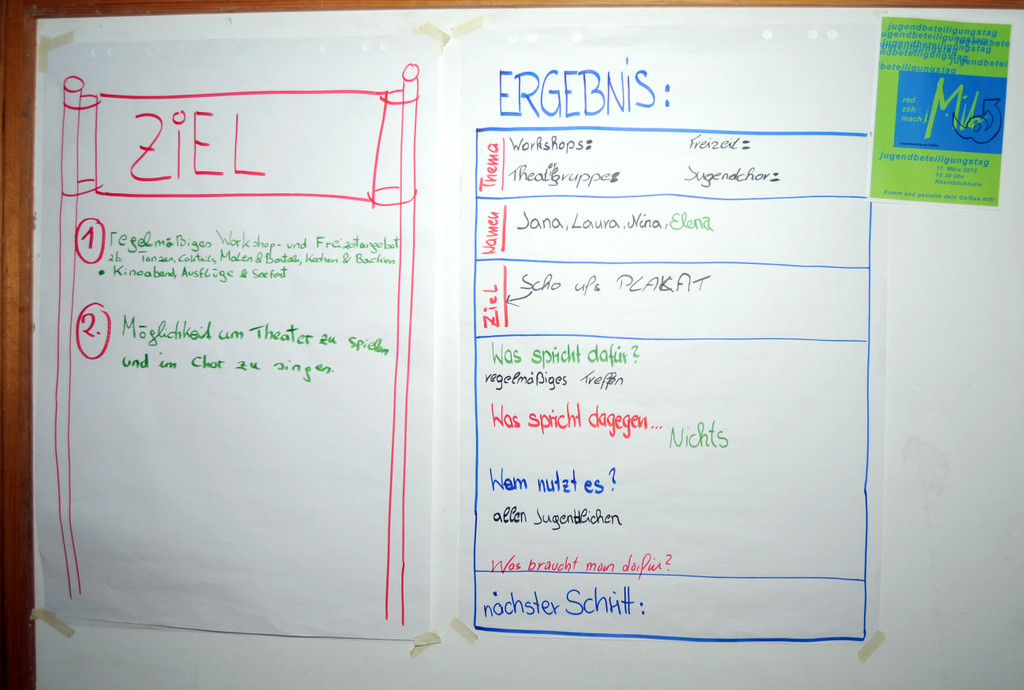 ZiEL
1 regelmäßiges Workshop- und Freizeitangebot
zb. Tanzen, Coktails, Malen & Basteln, Kochen & Backen
• Kinoabend, Ausflüge & Seefest
2. Möglichkeit um Theater zu spielen
und im Chor zu singen.
ERGEBNiS:
Thema
Workshops: Freizeit:
Theatergruppe: Jugendchor:
Namen
Jana, Laura, Nina, Elena
Ziel
Scho ufs PLAKAT
Was spricht dafür?
regelmäßiges Treffen
Was spricht dagegen...
Nichts
Wem nutzt es?
allen Jugendlichen
Was braucht man dafür?
nächster Schritt:
jugendbeteiligungstag
jugendbeteiligungstag
red
züh
mach
jugendbeteiligungstag
17. März 2012
10.30 Uhr
Rheinblickhalle
Komm und gestalte dein Gaißau mit!